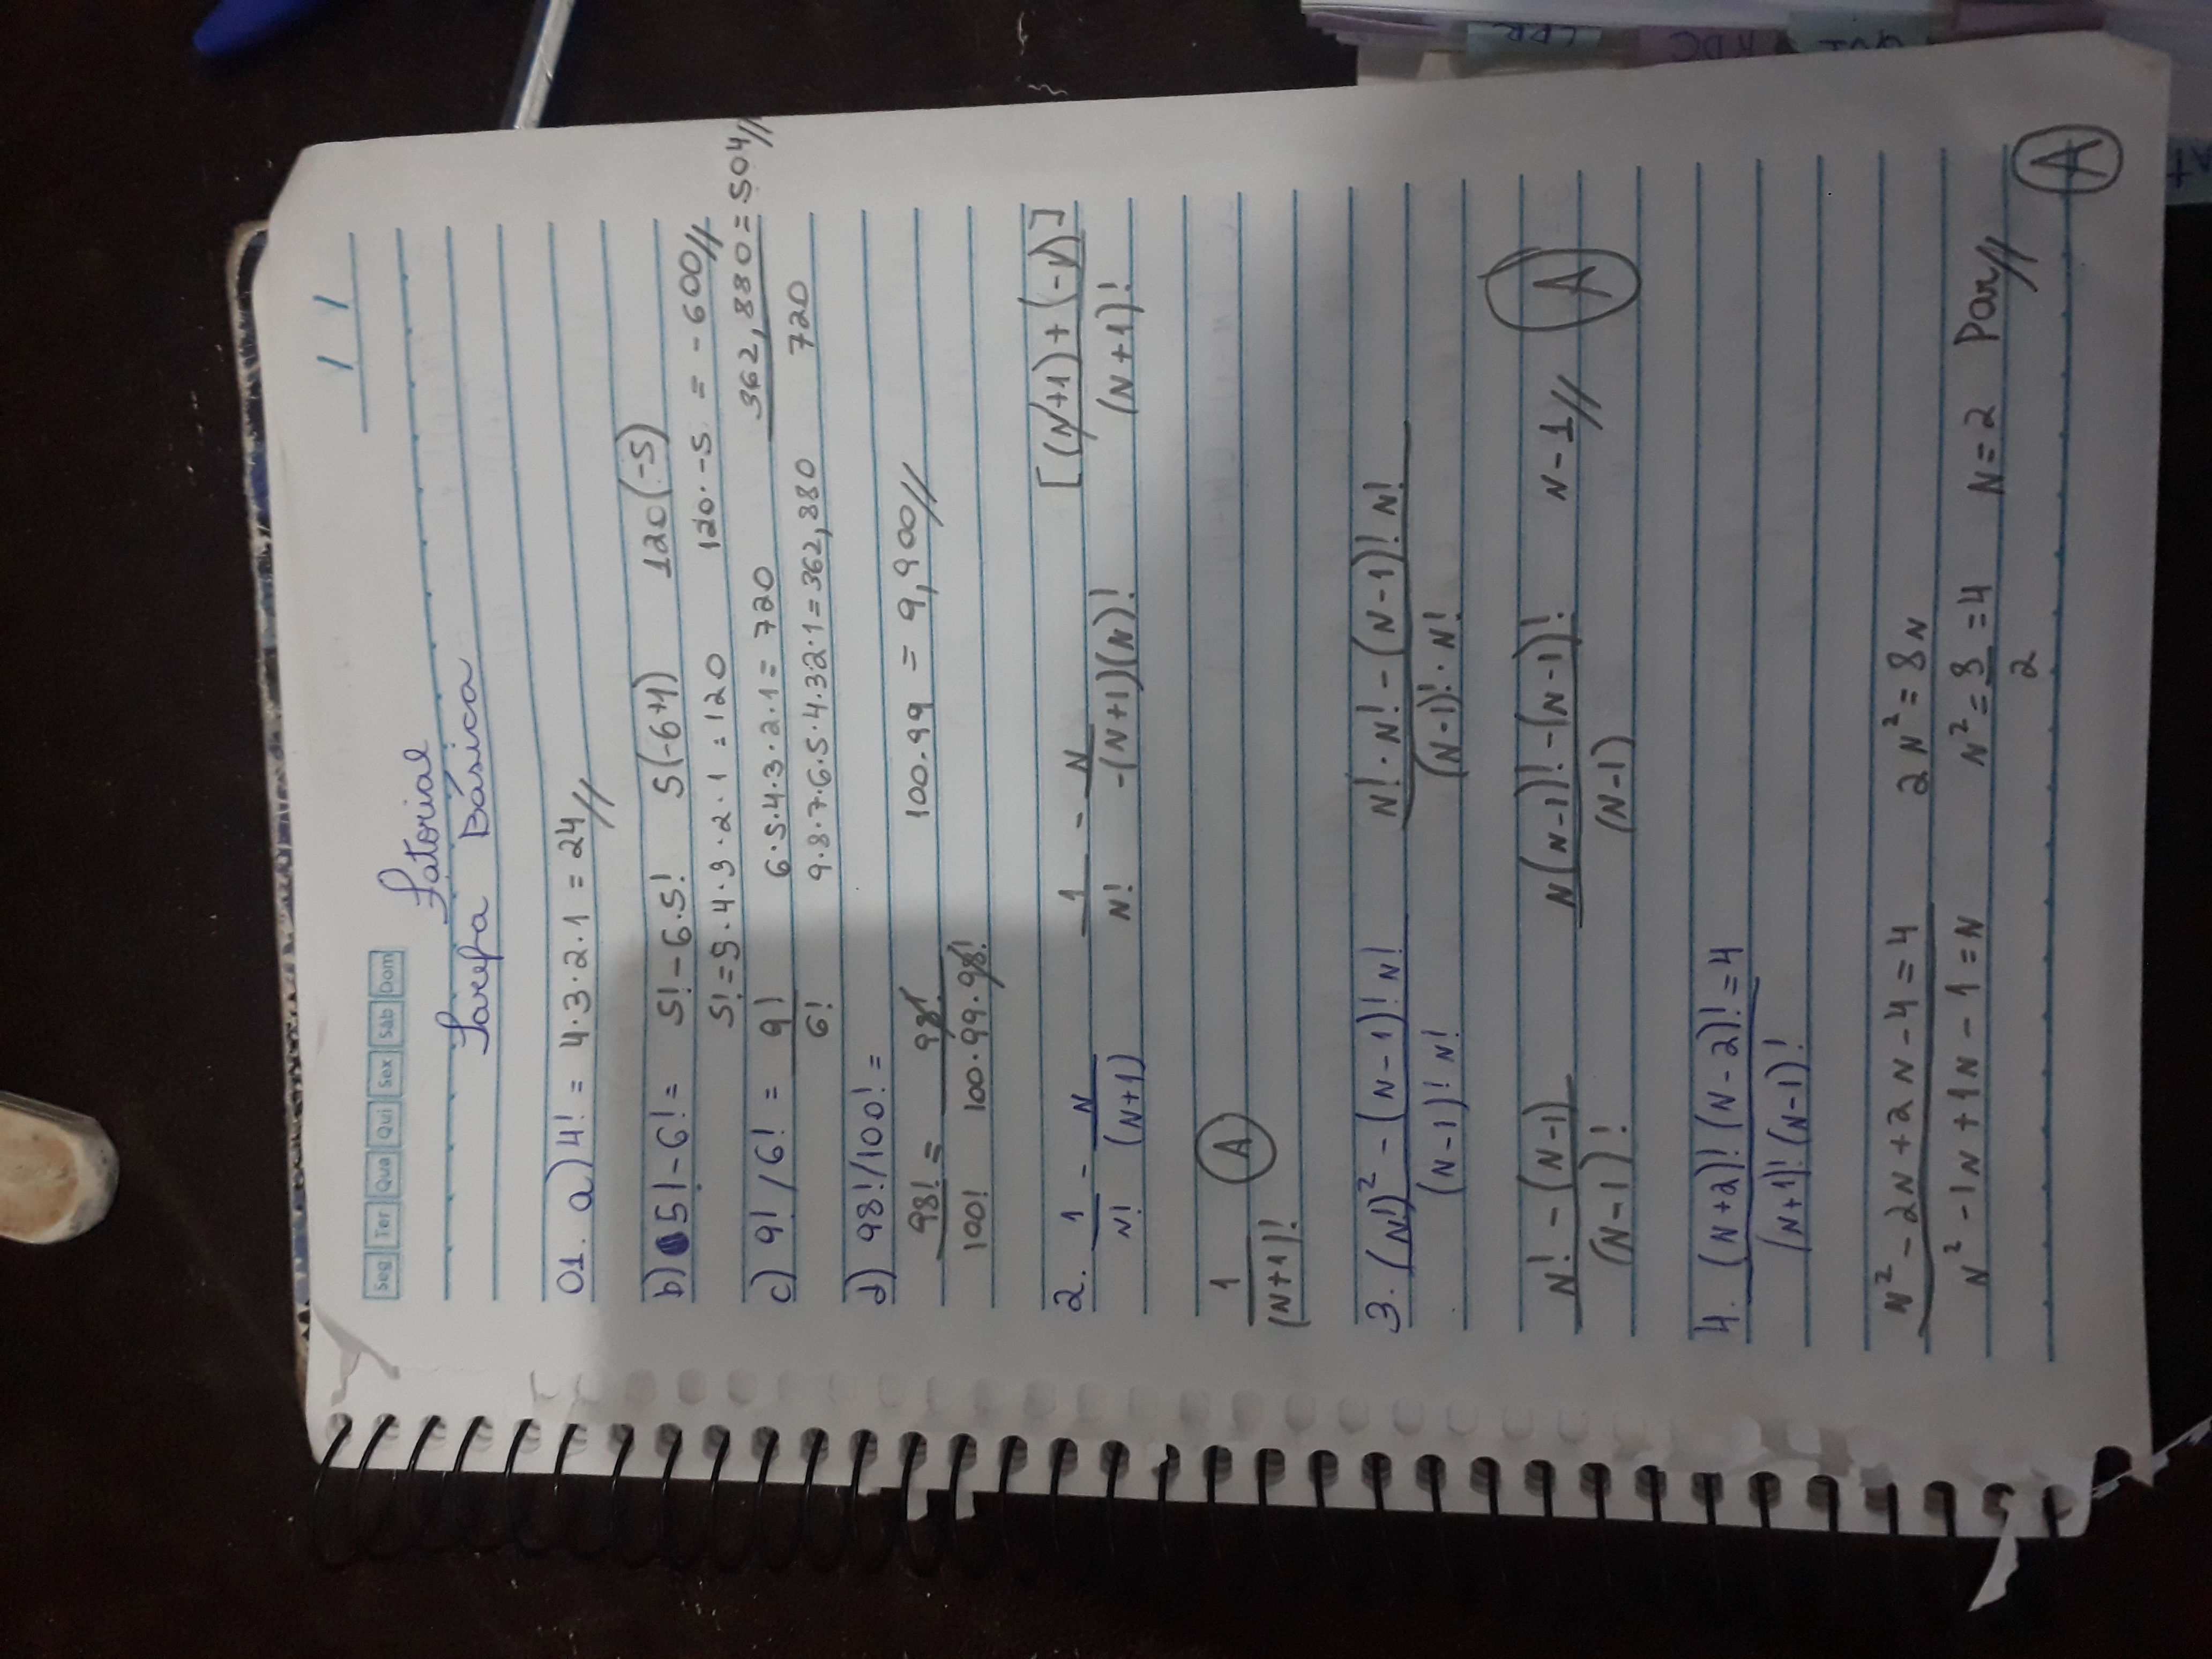 / /
Seg Ter Qua Qui Sex Sáb Dom
Fatorial
Tarefa Básica
01. a) 4! = 4·3·2·1 = 24//
b) 5!-6! = 5!-6·5! 5(-6+1) 120(-5)
5!=5·4·3·2·1=120 120·-5 = -600//
c) 9! / 6! = 9! 6·5·4·3·2·1= 720 362,880=504//
6! 9·8·7·6·5·4·32·1=362,880 720
d) 98!/100! =
98! = 98! 100.99 = 9,900//
100! 100·99·98!
2. 1 - N 1 - N [(N+1)+(-N)]
N! (N+1) N! -(N+1)(N)! (N+1)!
1 A
(N+1)!
3. (N!)² - (N-1)! N! N!·N!-(N-1)! N!
(N-1)! N! (N-1)!·N!
N! - (N-1) N(N-1)!-(N-1)! N-1// A
(N-1)! (N-1)
4. (N+2)! (N-2)! = 4
(N+1)! (N-1)!
N²-2N+2N-4=4 2N²=8N
N²-1N+1N-1=N N²=8=4 N=2 Par//
2
A
LPR